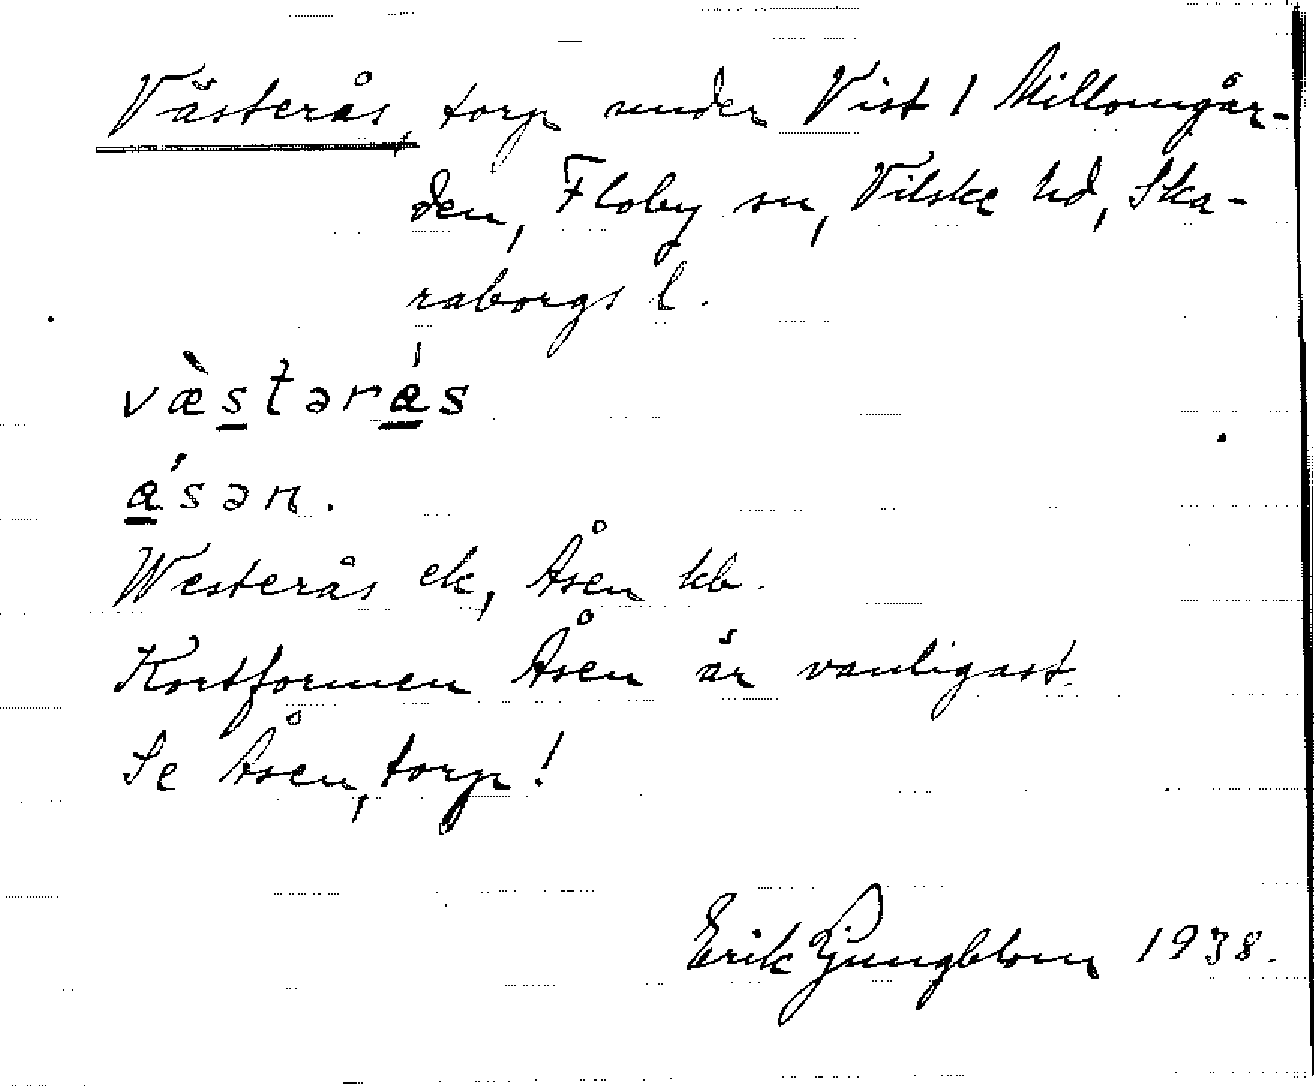 Västerås, torp under Vist 1 Millomgår-
den, Floby sn, Vilske hd, Ska-
raborgs l.
væ̀stərás
ásən.
Westerås ek, Åsen kb.
Kortformen Åsen är vanligast.
Se Åsen, torp!
Erik Ljungblom 1938.